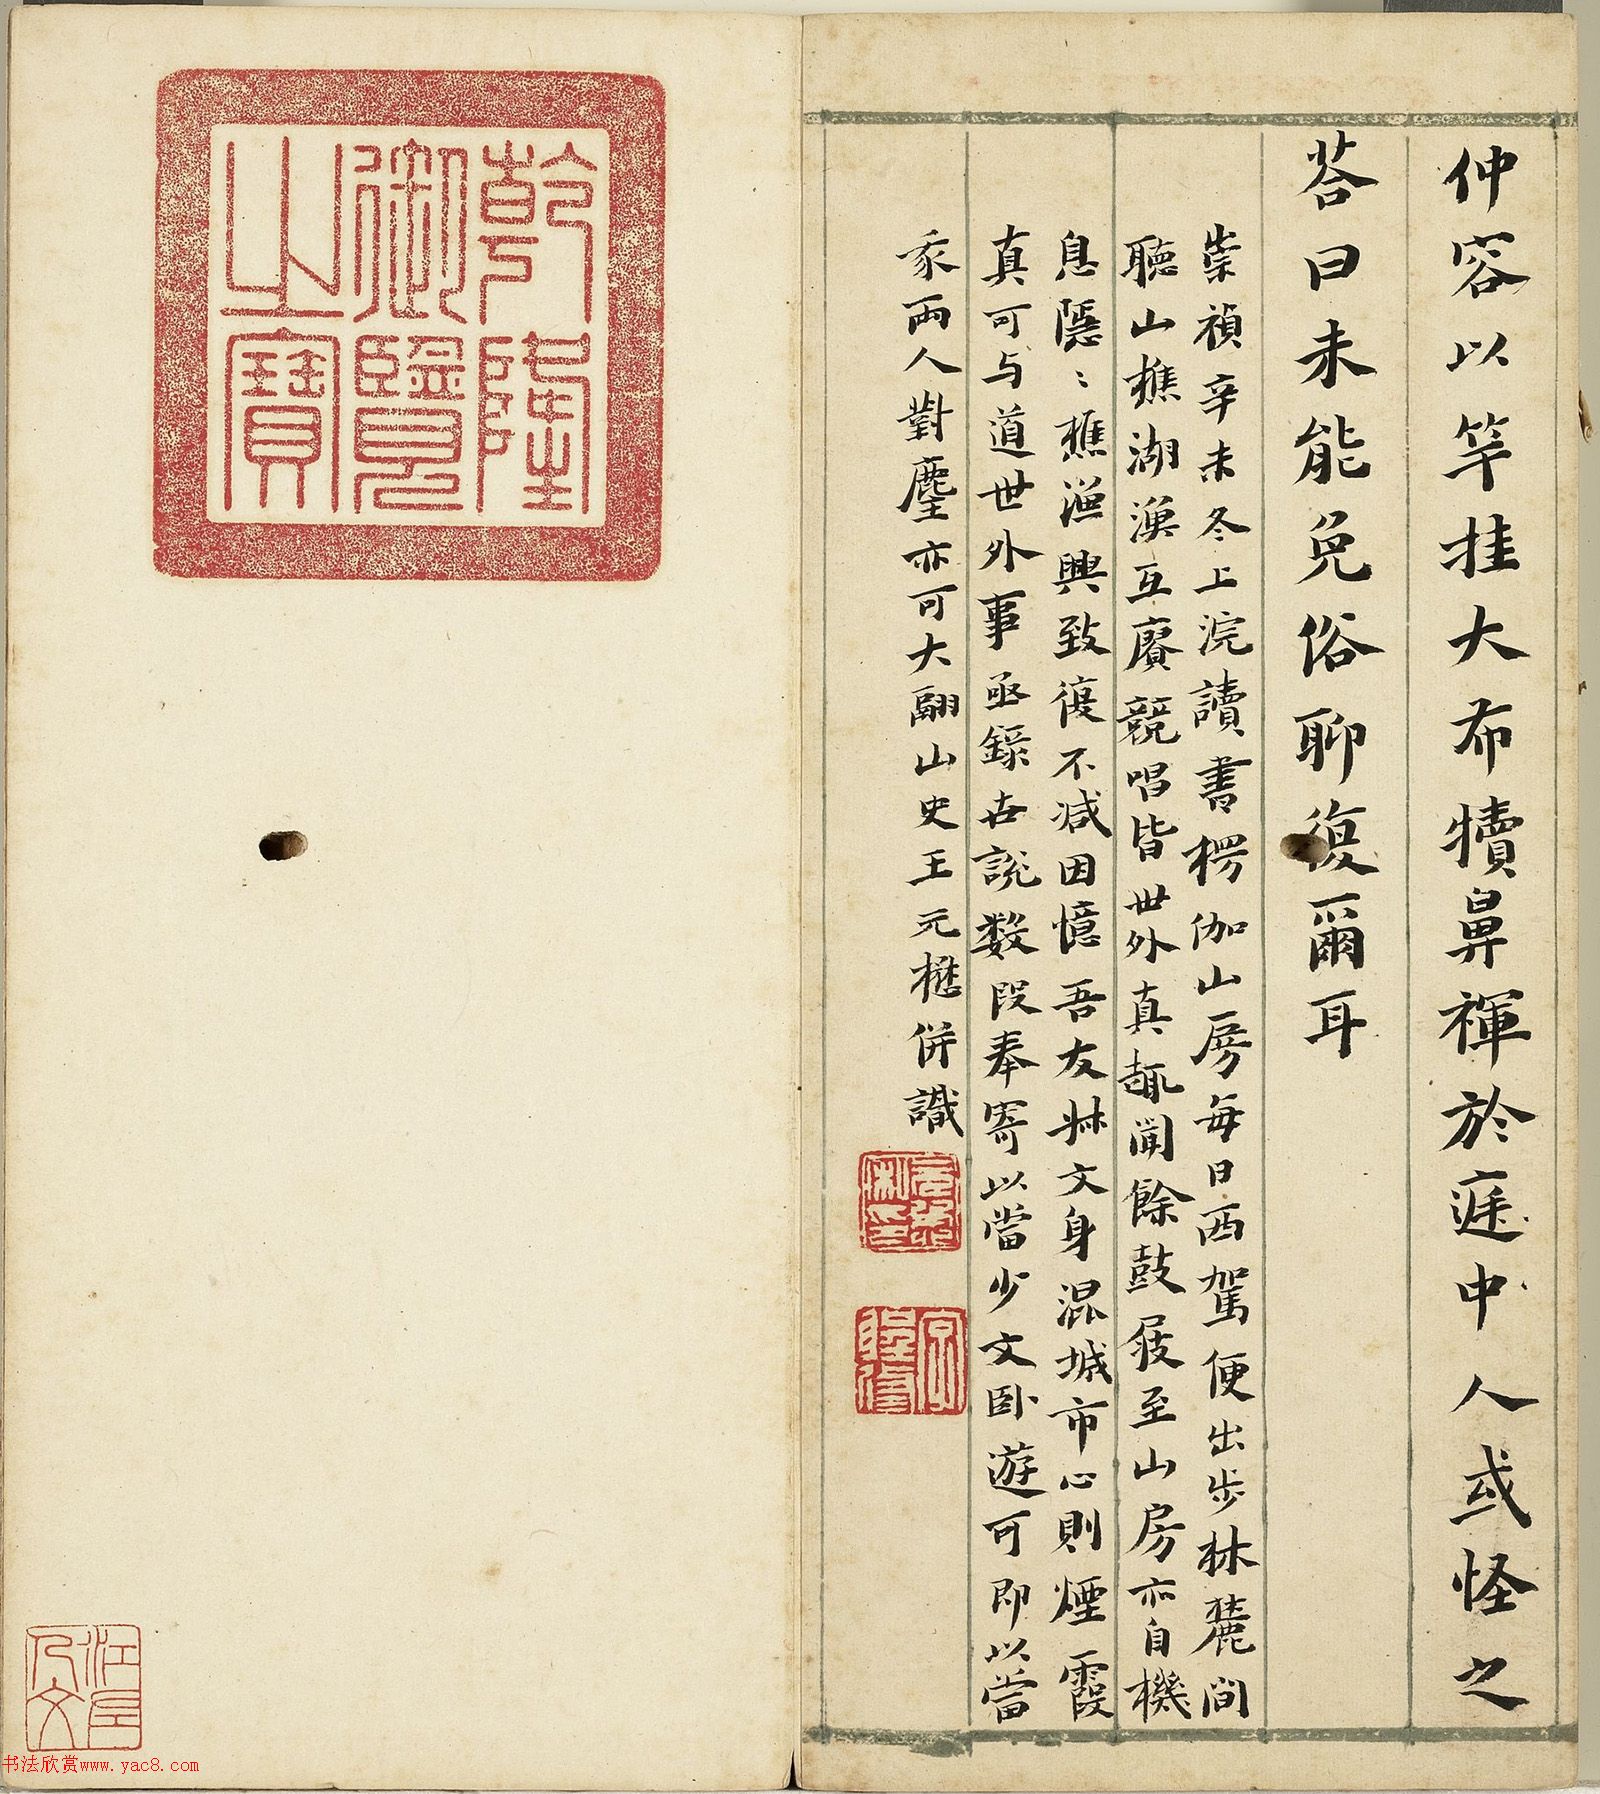 仲容以竿挂大布犢鼻褌於庭中人或怪之
荅曰未能免俗聊復爾耳
崇禎辛未冬上浣讀書楞伽山房每日西駕便出步林麓間
聽山樵湖漁互賡競唱皆世外真趣聞餘鼓屐至山房亦自機
息隱〻樵漁興致復不減因憶吾友牀文身混城市心則煙霞
真可与道世外事亟錄古說数段奉寄以當少文臥遊可即以當
我兩人對麈亦可大翮山史王元懋併識
乾隆
御覽
之寶
江邨
乃文
书法欣赏www.yac8.com